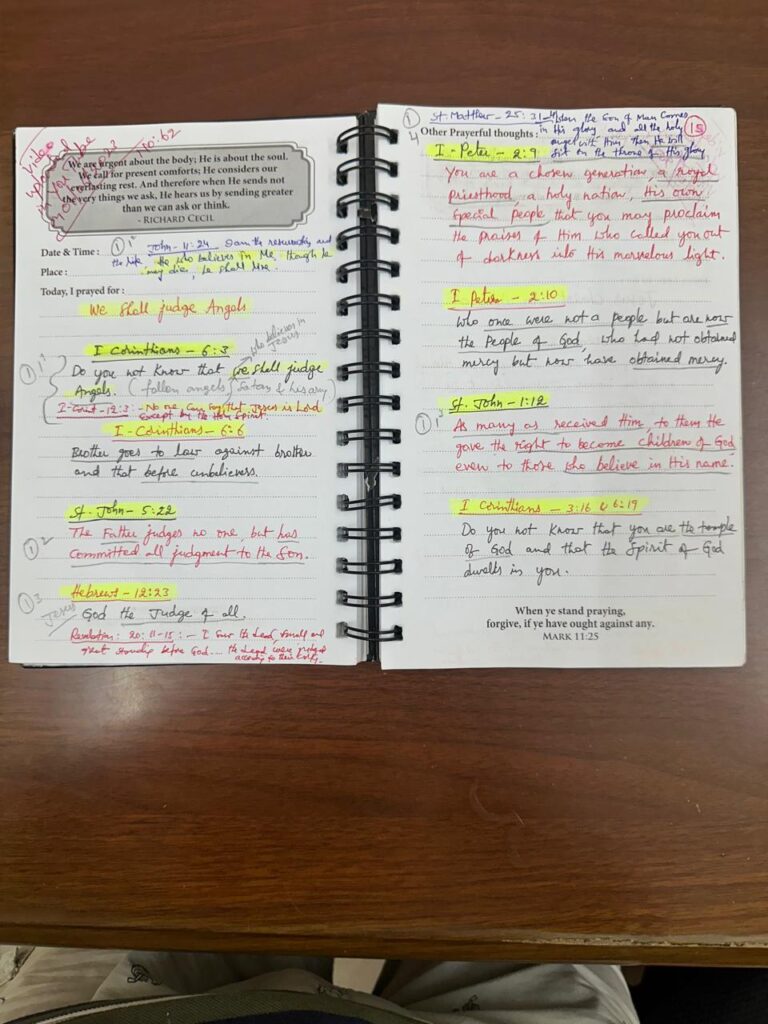 Video
You Tube
We are urgent about the body; He is about the soul.
We call for present comforts; He considers our
everlasting rest. And therefore when He sends not
the very things we ask, He hears us by sending greater
than we can ask or think.
- RICHARD CECIL
Date & Time : ① 1" John - 11:24 I am the resurrection and
the life. He who believes in Me, though he
Place : may die, he shall live.
Today, I prayed for :
We Shall judge Angels
who believes in
Jesus
I Corinthians - 6:3
① 1" Do you not know that we shall judge
Angels. (fallen angels, Satan & his army)
I-Corint-12:3 - No one can say that Jesus is Lord
Except by the Holy Spirit.
I - Corinthians - 6:6
Brother goes to law against brother
and that before unbelievers.
St. John - 5:22
① 2 The Father judges no one, but has
Committed all judgment to the Son.
Hebrews - 12:23
① 3 Jesus God the Judge of all.
Revelation: 20:11-15 :- I saw the dead, small and
great standing before God.... the dead were judged
according to their
① 4 St Matthew - 25:31-
When the Son of Man Comes
in His glory and all the holy
angels with Him, then He will
sit on the throne of His glory
15
Other Prayerful thoughts :
I - Peter - 2:9
You are a chosen generation, a royal
priesthood, a holy nation, His own
Special People that you may proclaim
the praises of Him who called you out
of darkness into His marvelous light.
I Peter - 2:10
Who once were not a people but are now
the People of God, who had not obtained
mercy but now have obtained mercy.
St. John - 1:12
① 1 3 As many as received Him, to them He
gave the right to become children of God,
even to those who believe in His name.
I Corinthians - 3:16 & 6:19
Do you not know that you are the temple
of God and that the Spirit of God
dwells in you.
When ye stand praying,
forgive, if ye have ought against any.
MARK 11:25